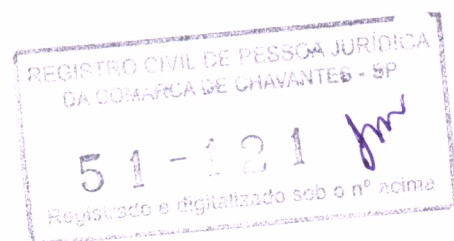 REGISTRO CIVIL DE PESSOA JURÍDICA
DA COMARCA DE CHAVANTES - SP
51-121
Registrado e digitalizado sob o nº acima